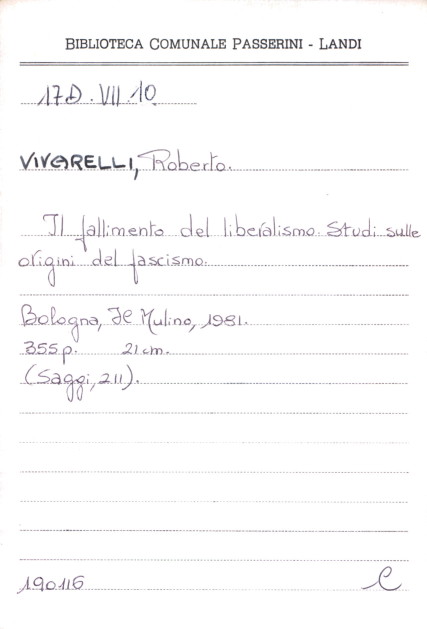 BIBLIOTECA COMUNALE PASSERINI - LANDI
17D.VII.10
VIVARELLI, Roberto.
Il fallimento del liberalismo. Studi sulle
origini del fascismo.
Bologna, Il Mulino, 1981.
355 p. 21 cm.
(Saggi, 211).
190116
C